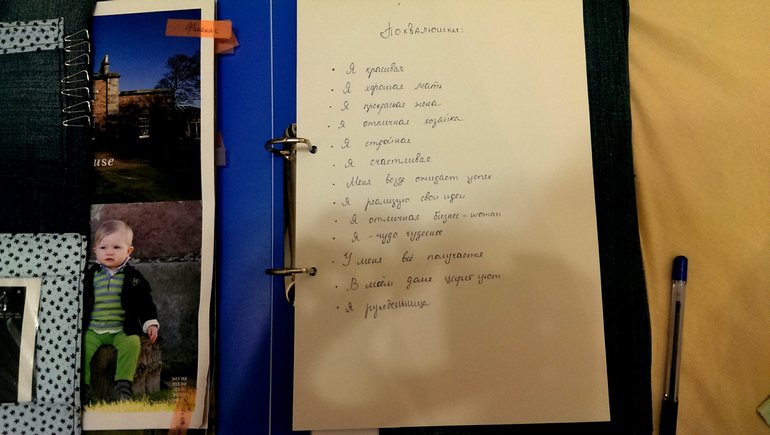 Похвалюшки:
• Я красивая
• Я хорошая мать
• Я прекрасная жена
• Я отличная хозяйка
• Я стройная
• Я счастливая
• Меня везде ожидает успех
• Я реализую свои идеи
• Я отличная бизнес-woman
• Я - чудо чудесное
• У меня всё получается
• В моём доме царит уют
• Я рукодельница
use